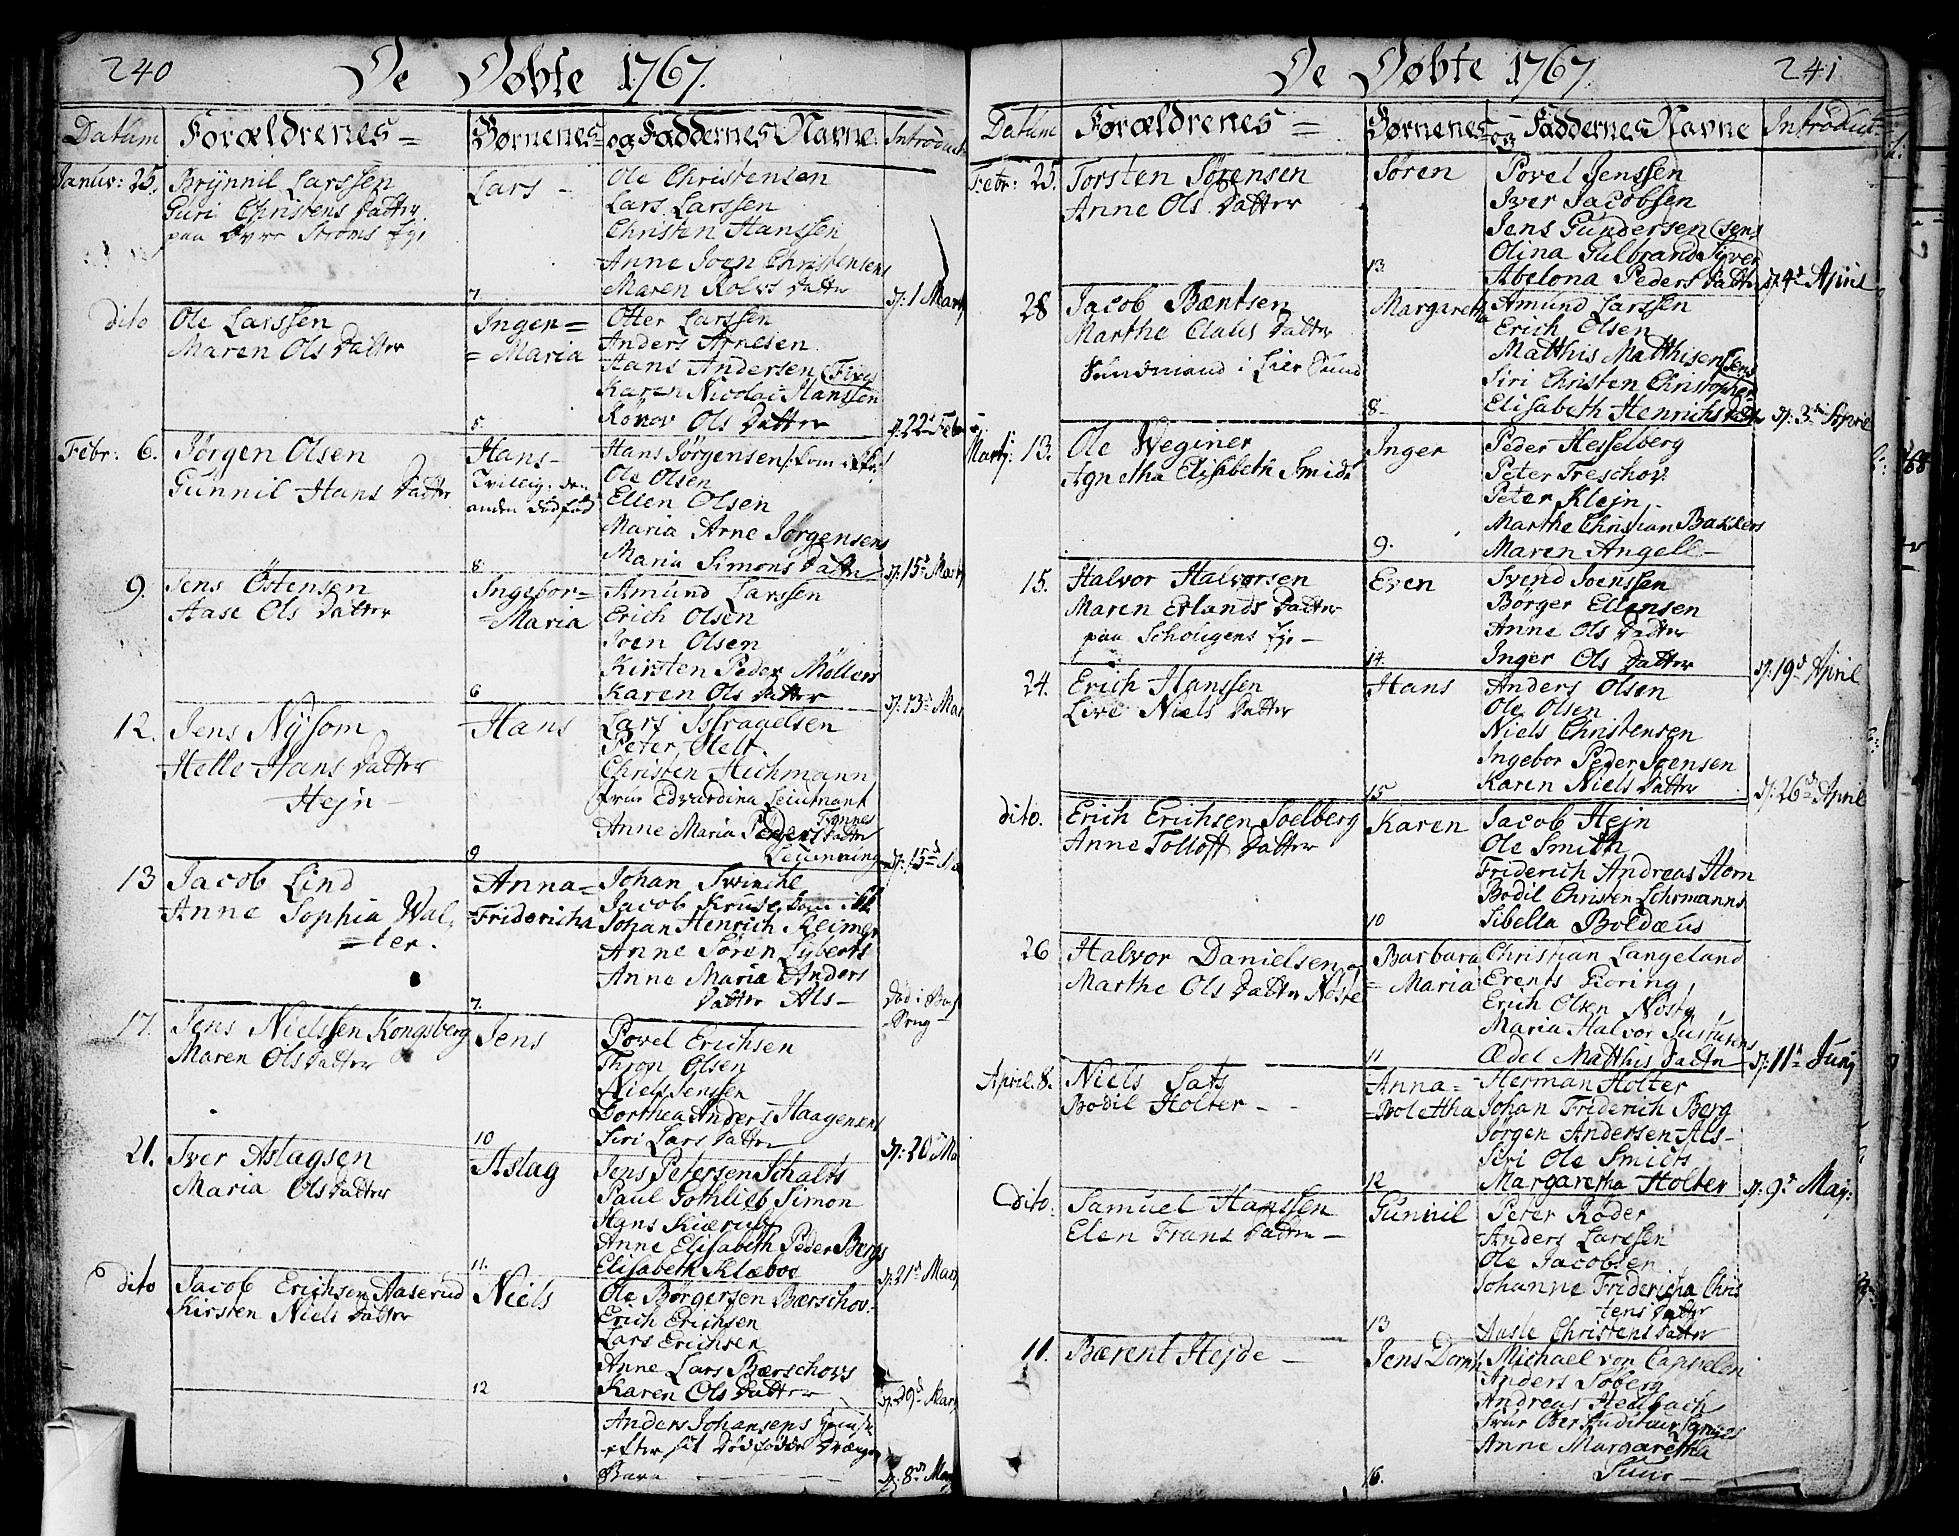 240 De Døbte 1767.
Datum Forældrenes = Børnenes = og Faddernes Navne. Introduct
Januar: 25. Brynnil Larssen
Guri Christens Datter
paa Øvre Strøms Eje
Lars -
7
Ole Christensen
Lars Larssen
Christen Hanssen
Anne Joen Christensens
Maren Rolvs Datter
d: 1 Martj
dito Ole Larssen
Maren Ols Datter
Ingen =
= Maria
5
Otter Larssen
Anders Arnesen
Hans Andersen
Karen Nicolai Hanssen
Rønov Ols Datter
d: 22d Febr
Febr: 6. Jørgen Olsen
Gunnil Hans Datter
Hans -
Tvilling. den
anden dødfød
8
Hans Jørgensen
Ole Olsen
Ellen Olsen
Maria Arne Jørgensens
Maria Simons Datter
d: 15d Martj
9. Jens Østensen
Aase Ols Datter
Ingebor =
= Maria
6
Amund Larssen
Erich Olsen
Joen Olsen
Kirsten Peder Møllers
Karen Ols Datter
d: 13d Mar
12. Jens Nysom
Helle Hans Datter
Hejn -
Hans
9
Lars Issragelsen
Peter Helt
Christen Hichmann
Frue Edvardina Leiutnant
Tønnes
Anne Maria Peders Datter
d: 15d
13 Jacob Lind
Anne Sophia Wal =
= ter.
Anna =
= Fridericha
7.
Johan Swinche
Jacob Kruse
Johan Henrich Reimer
Anne Søren Lyberts
Anne Maria Anders
Datter Als -
Død i Barsel
Seng
17. Jens Nielssen Kongsberg
Maren Ols Datter
Jens
10
Povel Erichsen
Thron Olsen
Niels Jenssen
Dorthea Anders Haagensens
Siri Lars Datter
d: 20 Ma
21. Iver Aslagsen
Maria Ols Datter
Aslag
11.
Jens Petersen Schalts
Paul Gothlieb Simon
Hans Kiærulf
Anne Elisabeth Peder Bergs
Elisabeth Klæboe
d: 21d Martj
dito Jacob Erichsen Aaserud
Kirsten Niels Datter
Niels
12
Ole Børgersen Bærschov:
Erich Erichsen
Lars Erichsen
Anne Lars Bærschovs
Karen Ols Datter
d: 29d Martj
Anders Johansens
efter sit Dødfødde Drænge
Barn
d: 8d Maj
De Døbte 1767. 241
Datum Forældrenes = Børnenes = og Faddernes Navne Introduct
Febr: 25. Torsten Sørensen
Anne Ols Datter
Søren
13
Povel Jenssen
Iver Jacobsen
Jens Gundersen
Olina Gulbrand Syver
sens
Abelona Peders Datter
d: 4d April
28 Jacob Bæntsen
Marthe Claus Datter
Sundmand i Lier Sund
Margaretha
8
Amund Larssen
Erich Olsen
Matthis Matthisen
Siri Christen Christopher
sens
Elisabeth Henrichs Datter
d: 3die April
Martj: 13. Ole Weginer
Agnetha Elisabeth Smidt
Inger
9.
Peder Hesselberg
Peter Treschov
Peter Klejn
Marthe Christian Bakkers
Maren Angell -
15. Halvor Halvorsen
Maren Erlands Datter
paa Schougens Eje -
Even
14
Svend Joenssen
Børger Ellensen
Anne Ols Datter
Inger Ols Datter
d: 19d April
24. Erich Hanssen
Live Niels Datter
Hans
15
Anders Olsen
Ole Olsen
Niels Christensen
Ingebor Peder Joensen
Karen Niels Datter
d: 26d April
dito. Erich Erichsen Soelberg
Anne Tolloft Datter
Karen
10
Jacob Hejn
Ole Smith
Friderich Andreas Horn
Bodil Christen Lehrmanns
Sibella Boldæus
26 Halvor Danielsen
Marthe Ols Datter Nøste
Barbara
= Maria
11
Christian Langeland
Erents Gioring
Erich Olsen Nøste
Maria Halvor
Ædel Matthis Datter
d: 11d Junj
April. 8. Niels Sats
Bodil Holter -
Anna =
= Bolettha
12
Herman Holter
Johan Friderich Berg
Jørgen Andersen Als -
Siri Ole Smidts
Margaretha Holter
d: 9d Maj:
Dito. Samuel Hanssen
Elen Frans Datter -
Gunnil
13
Peter Røder
Anders Larssen
Ole Jacobsen
Johanne Fridericha Chris
tens Datter
Aasle Christens Datter
11. Bærent Hejde -
Jens Dorph
16.
Michael von Cappelen
Anders Søberg
Andreas Heilbach
Frue Ober Auditeur Langes
Anne Margaretha
Suur -